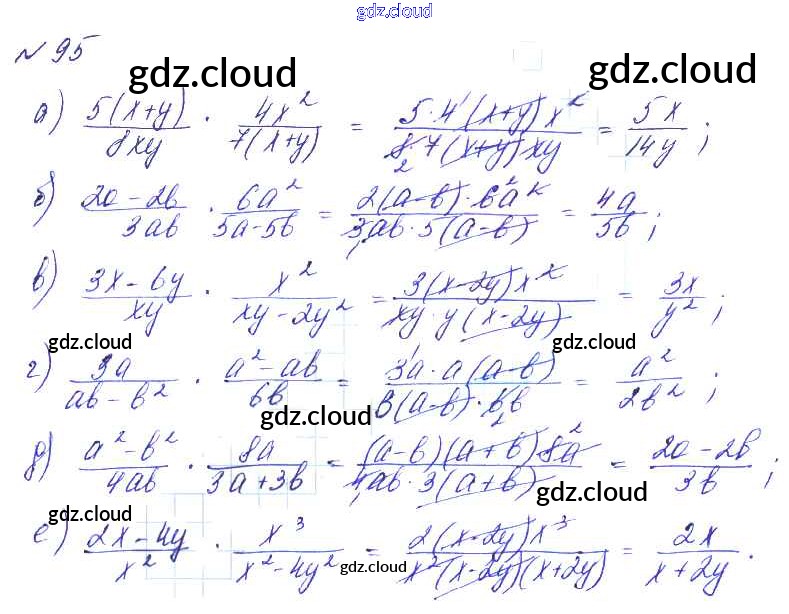 gdz.cloud
№ 95
gdz.cloud gdz.cloud
а) 5(x+y)/8xy · 4x²/7(x+y) = 5·4(x+y)x²/8·7(x+y)xy = 5x/14y ;
б) 2a-2b/3ab · 6a²/5a-5b = 2(a-b)·6a²/3ab·5(a-b) = 4a/5b ;
в) 3x-6y/xy · x²/xy-2y² = 3(x-2y)x²/xy·y(x-2y) = 3x/y² ;
gdz.cloud gdz.cloud
г) 3a/ab-b² · a²-ab/6b = 3a·a(a-b)/b(a-b)·6b = a²/2b² ;
gdz.cloud
д) a²-b²/4ab · 8a/3a+3b = (a-b)(a+b)8a/4ab·3(a+b) = 2a-2b/3b ;
gdz.cloud gdz.cloud
е) 2x-4y/x² · x³/x²-4y² = 2(x-2y)x³/x²(x-2y)(x+2y) = 2x/x+2y .
gdz.cloud